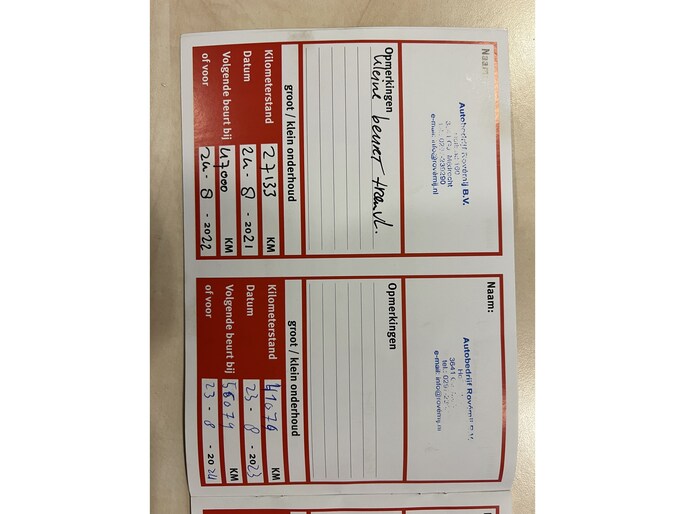 Naam:
Autobedrijf Rovémij B.V.
e-mail: info@rovemij.nl
Opmerkingen
kleine beurt
groot / klein onderhoud
Kilometerstand 27133 KM
Datum 24 - 8 - 2021
Volgende beurt bij 47000 KM
of voor 24 - 8 - 2022
Naam:
Autobedrijf Rovémij B.V.
3641
e-mail: info@rovemij.nl
Opmerkingen
groot / klein onderhoud
Kilometerstand 41074 KM
Datum 23 - 8 - 2023
Volgende beurt bij KM
of voor 23 - 8 - 2024